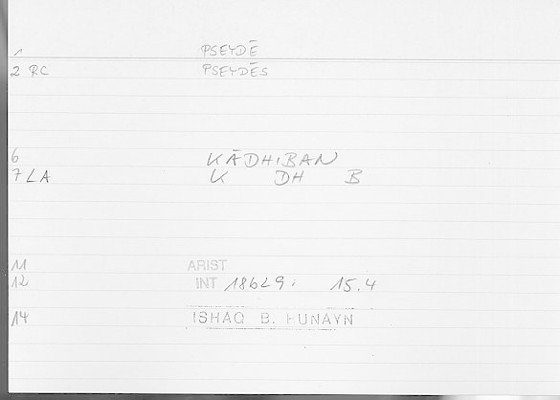 1 PSEYDĒ
2 RC PSEYDĒS
6 KĀDHIBAN
7 LA K DH B
11 ARIST
12 INT 18b29. 15.4
14 ISHAQ B. HUNAYN